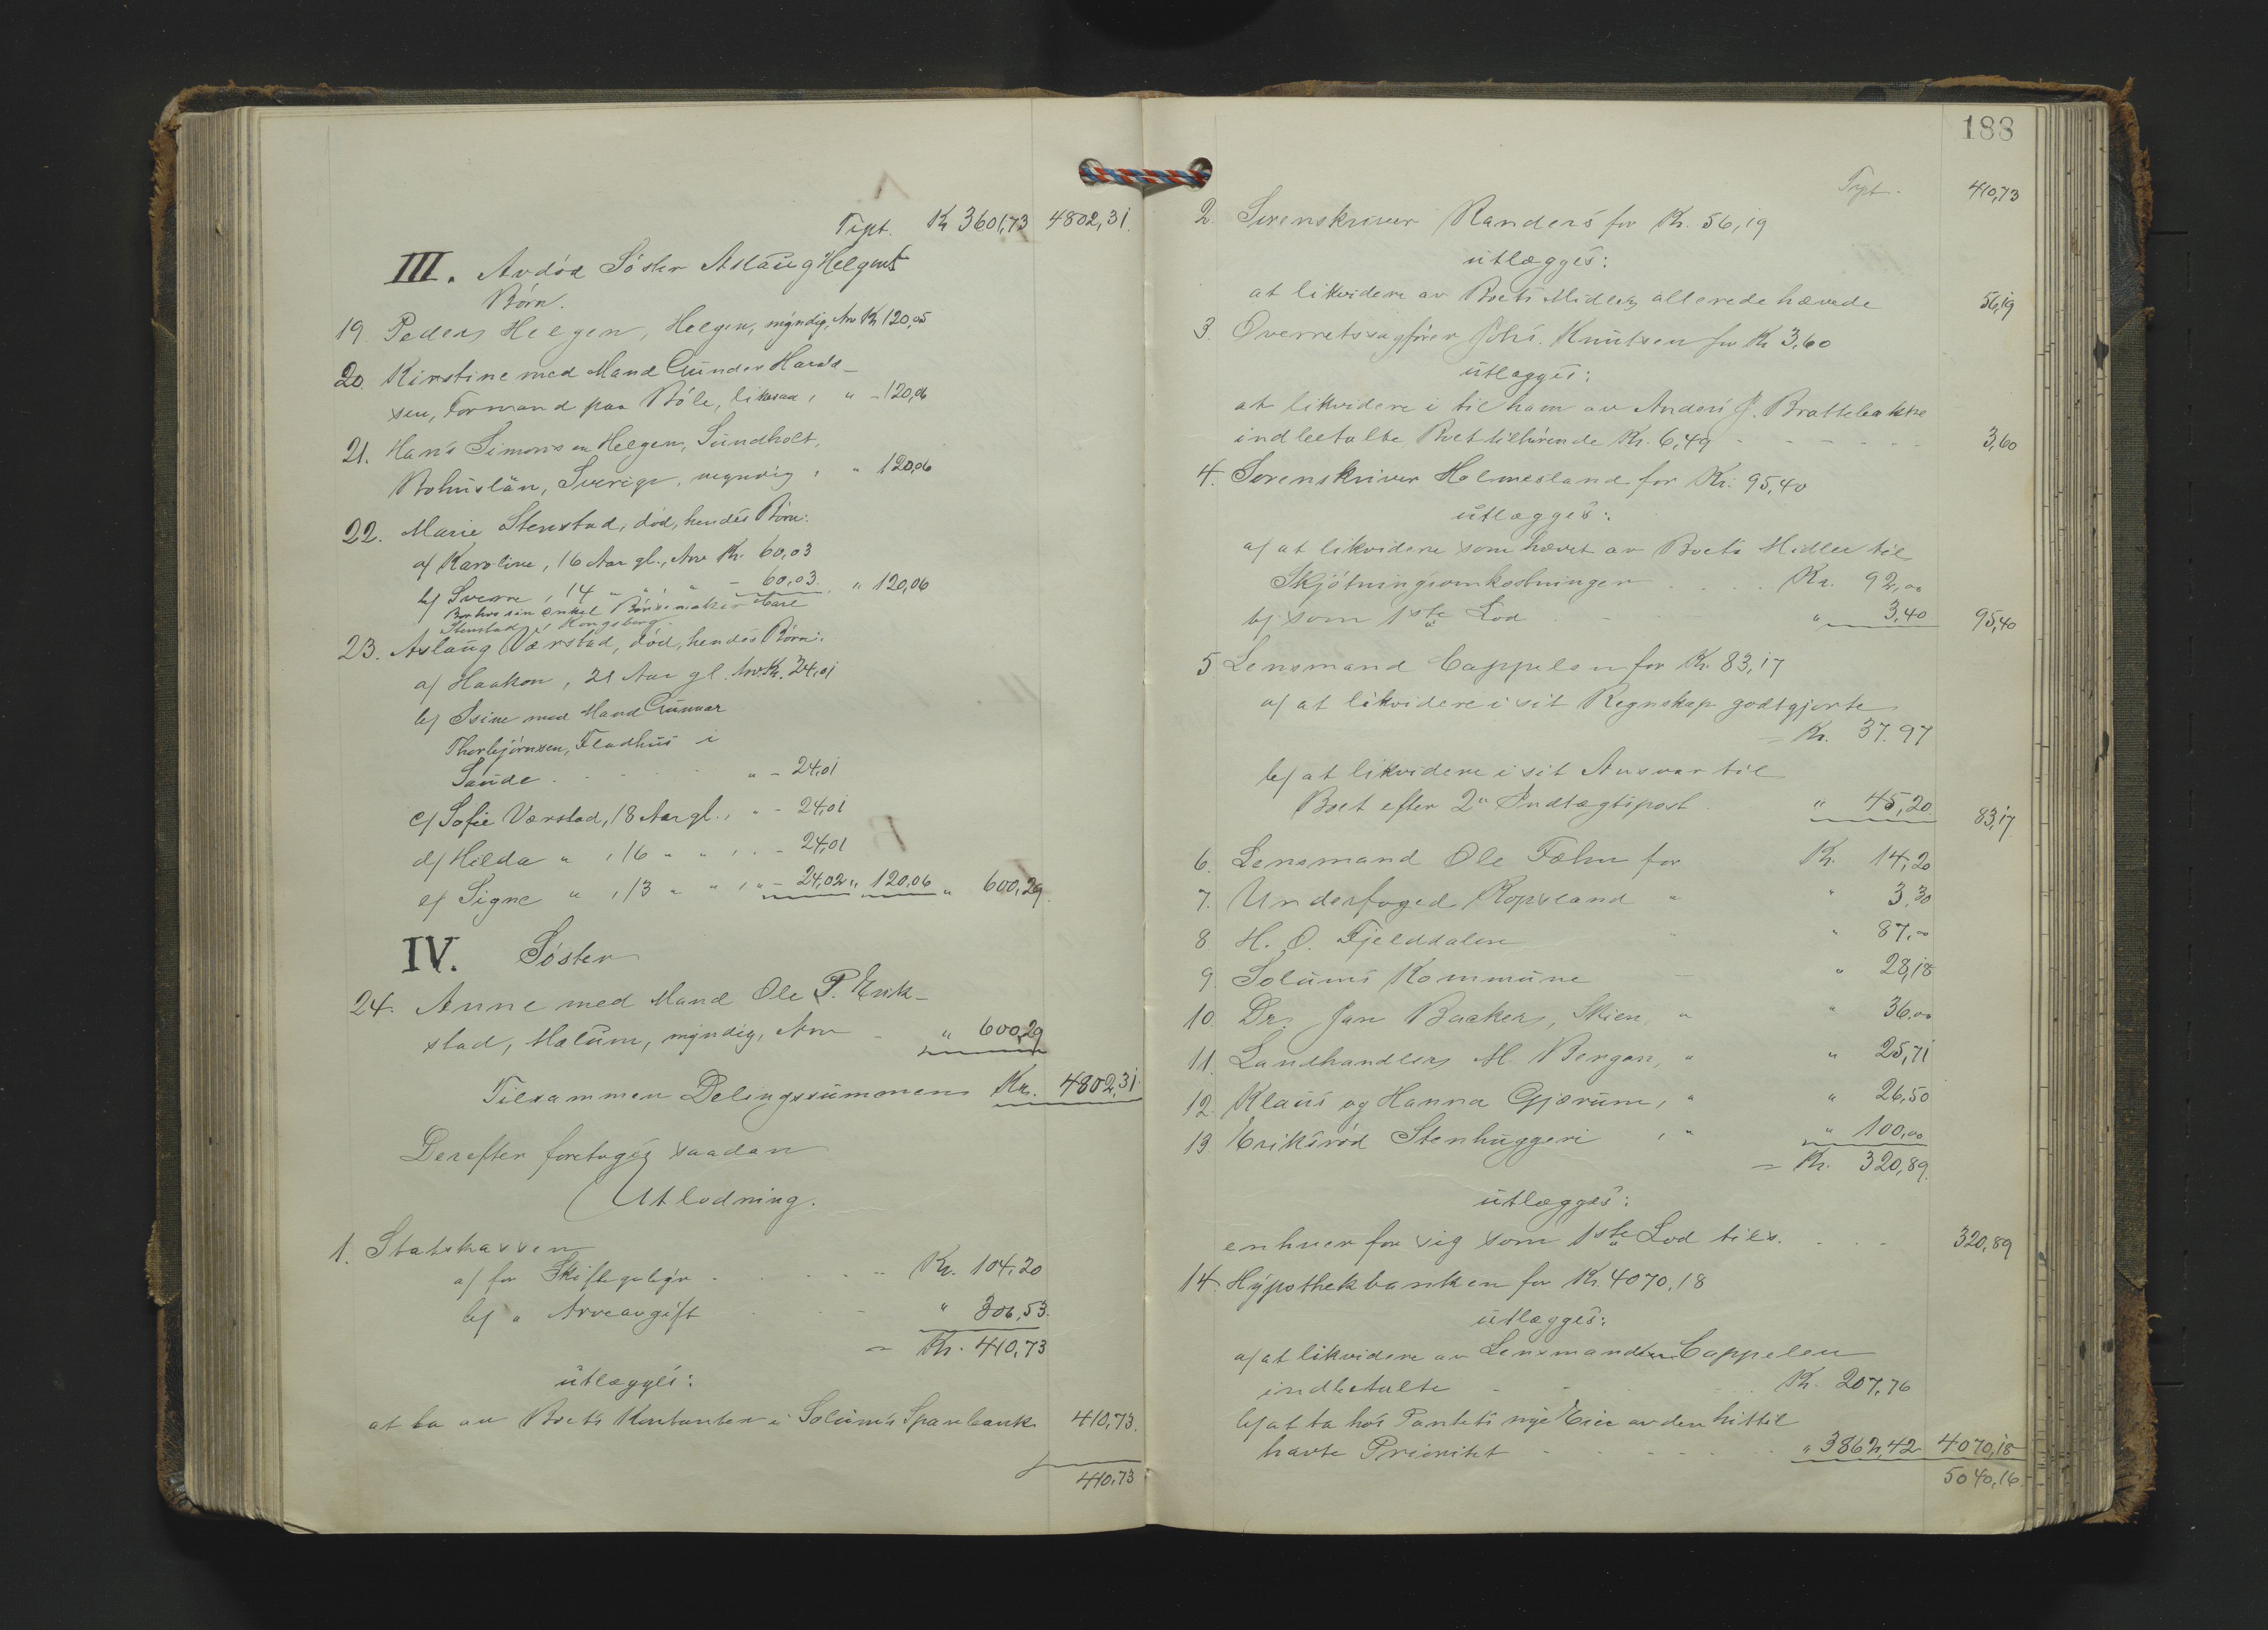 Tspt. Kr 3601,73 4802,31.
III. Avdød Søster Aslaug Helgens
Børn.
19. Peder Helgen, Helgen, myndig, Arv Kr 120,05
20. Kirstine med Mand Gunder Harald-
sen, Formand paa Bøle, likesaa, " - 120,06
21. Hans Simonsen Helgen, Sundholt,
Bohuslän, Sverige, myndig, " 120,06
22. Marie Stenstad, død, hendes Børn:
a/ Karoline, 16 Aar gl., Arv Kr. 60,03
b/ Sverre, 14 " " , " - 60,03. " 120,06
Bor hos sin Onkel Børsemaker Carl
Stenstad, Kongsberg.
23. Aslaug Værstad, død, hendes Børn:
a/ Haakon, 21 Aar gl. Arv. Kr. 24,01
b/ Isine med Mand Gunnar
Thorbjørnsen, Fladhus i
Sande - - - " - 24,01
c/ Sofie Værstad, 18 Aar gl., " - 24,01
d/ Hilda " , 16 " " , " - 24,01
e/ Signe " , 13 " " , " - 24,02 " 120,06 " 600,29.
IV. Søster
24. Anne med Mand Ole P. Enk-
stad, Mælum, myndig, Arv - " 600,29
Tilsammen Delingssummen Kr. 4802,31.
Derefter foretoges saadan
Utlodning.
1. Statskassen
a/ for Skiftegebyr - - - Kr. 104,20
b/ " Arveavgift - - - " 306,53.
= Kr. 410,73
utlægges:
at ta av Boets Kontanter i Solum's Sparebank 410,73.
410,73
188
Tspt. 410,73
2. Sorenskriver Randers for Kr. 56,19
utlægges:
at likvidere av Boets Midler allerede hævede 56,19
3. Overretssagfører Johs. Knutsen for Kr 3,60
utlægges:
at likvidere i til ham av Anders J. Brattebakke
indbetalte Boet tilhørende Kr. 6,49 - - - - 3,60
4. Sorenskriver Holmesland for Kr. 95,40
utlægges:
a/ at likvidere som hævet av Boets Midler til
Skjøtningsomkostninger . . . Kr. 92,00
b/ som 1ste Lod - - - " 3,40 95,40
5. Lensmand Cappelen for Kr. 83,17
a/ at likvidere i sit Regnskap godtgjorte
= Kr. 37.97
b/ at likvidere i sit Ansvar til
Boet efter 2" Indtægtspost. " 45,20. 83,17
6. Lensmand Ole Fæhn for Kr. 14,20
7. Underfoged Kopsland " " 3,30
8. H. O. Fjelddalen " " 87,00
9. Solums Kommune - " 28,18
10. Dr. Jan Backer, Skien, " " 36,00
11. Landhandler M. Bergan, " " 25,71
12. Klaus og Hanna Gjærum, " " 26,50
13. Eriksrød Stenhuggeri , " " 100,00
= Kr. 320,89.
utlægges:
enhver for sig som 1ste Lod tils. - - - 320,89
14. Hypothekbanken for Kr. 4070,18
utlægges:
a/ at likvidere av Lensmand Cappelen
indbetalte - - - Kr. 207,76
b/ at ta hos Pantets nye Eier av den hittil
havte Prioritet - - - " 3862,42 4070,18
5040,16.